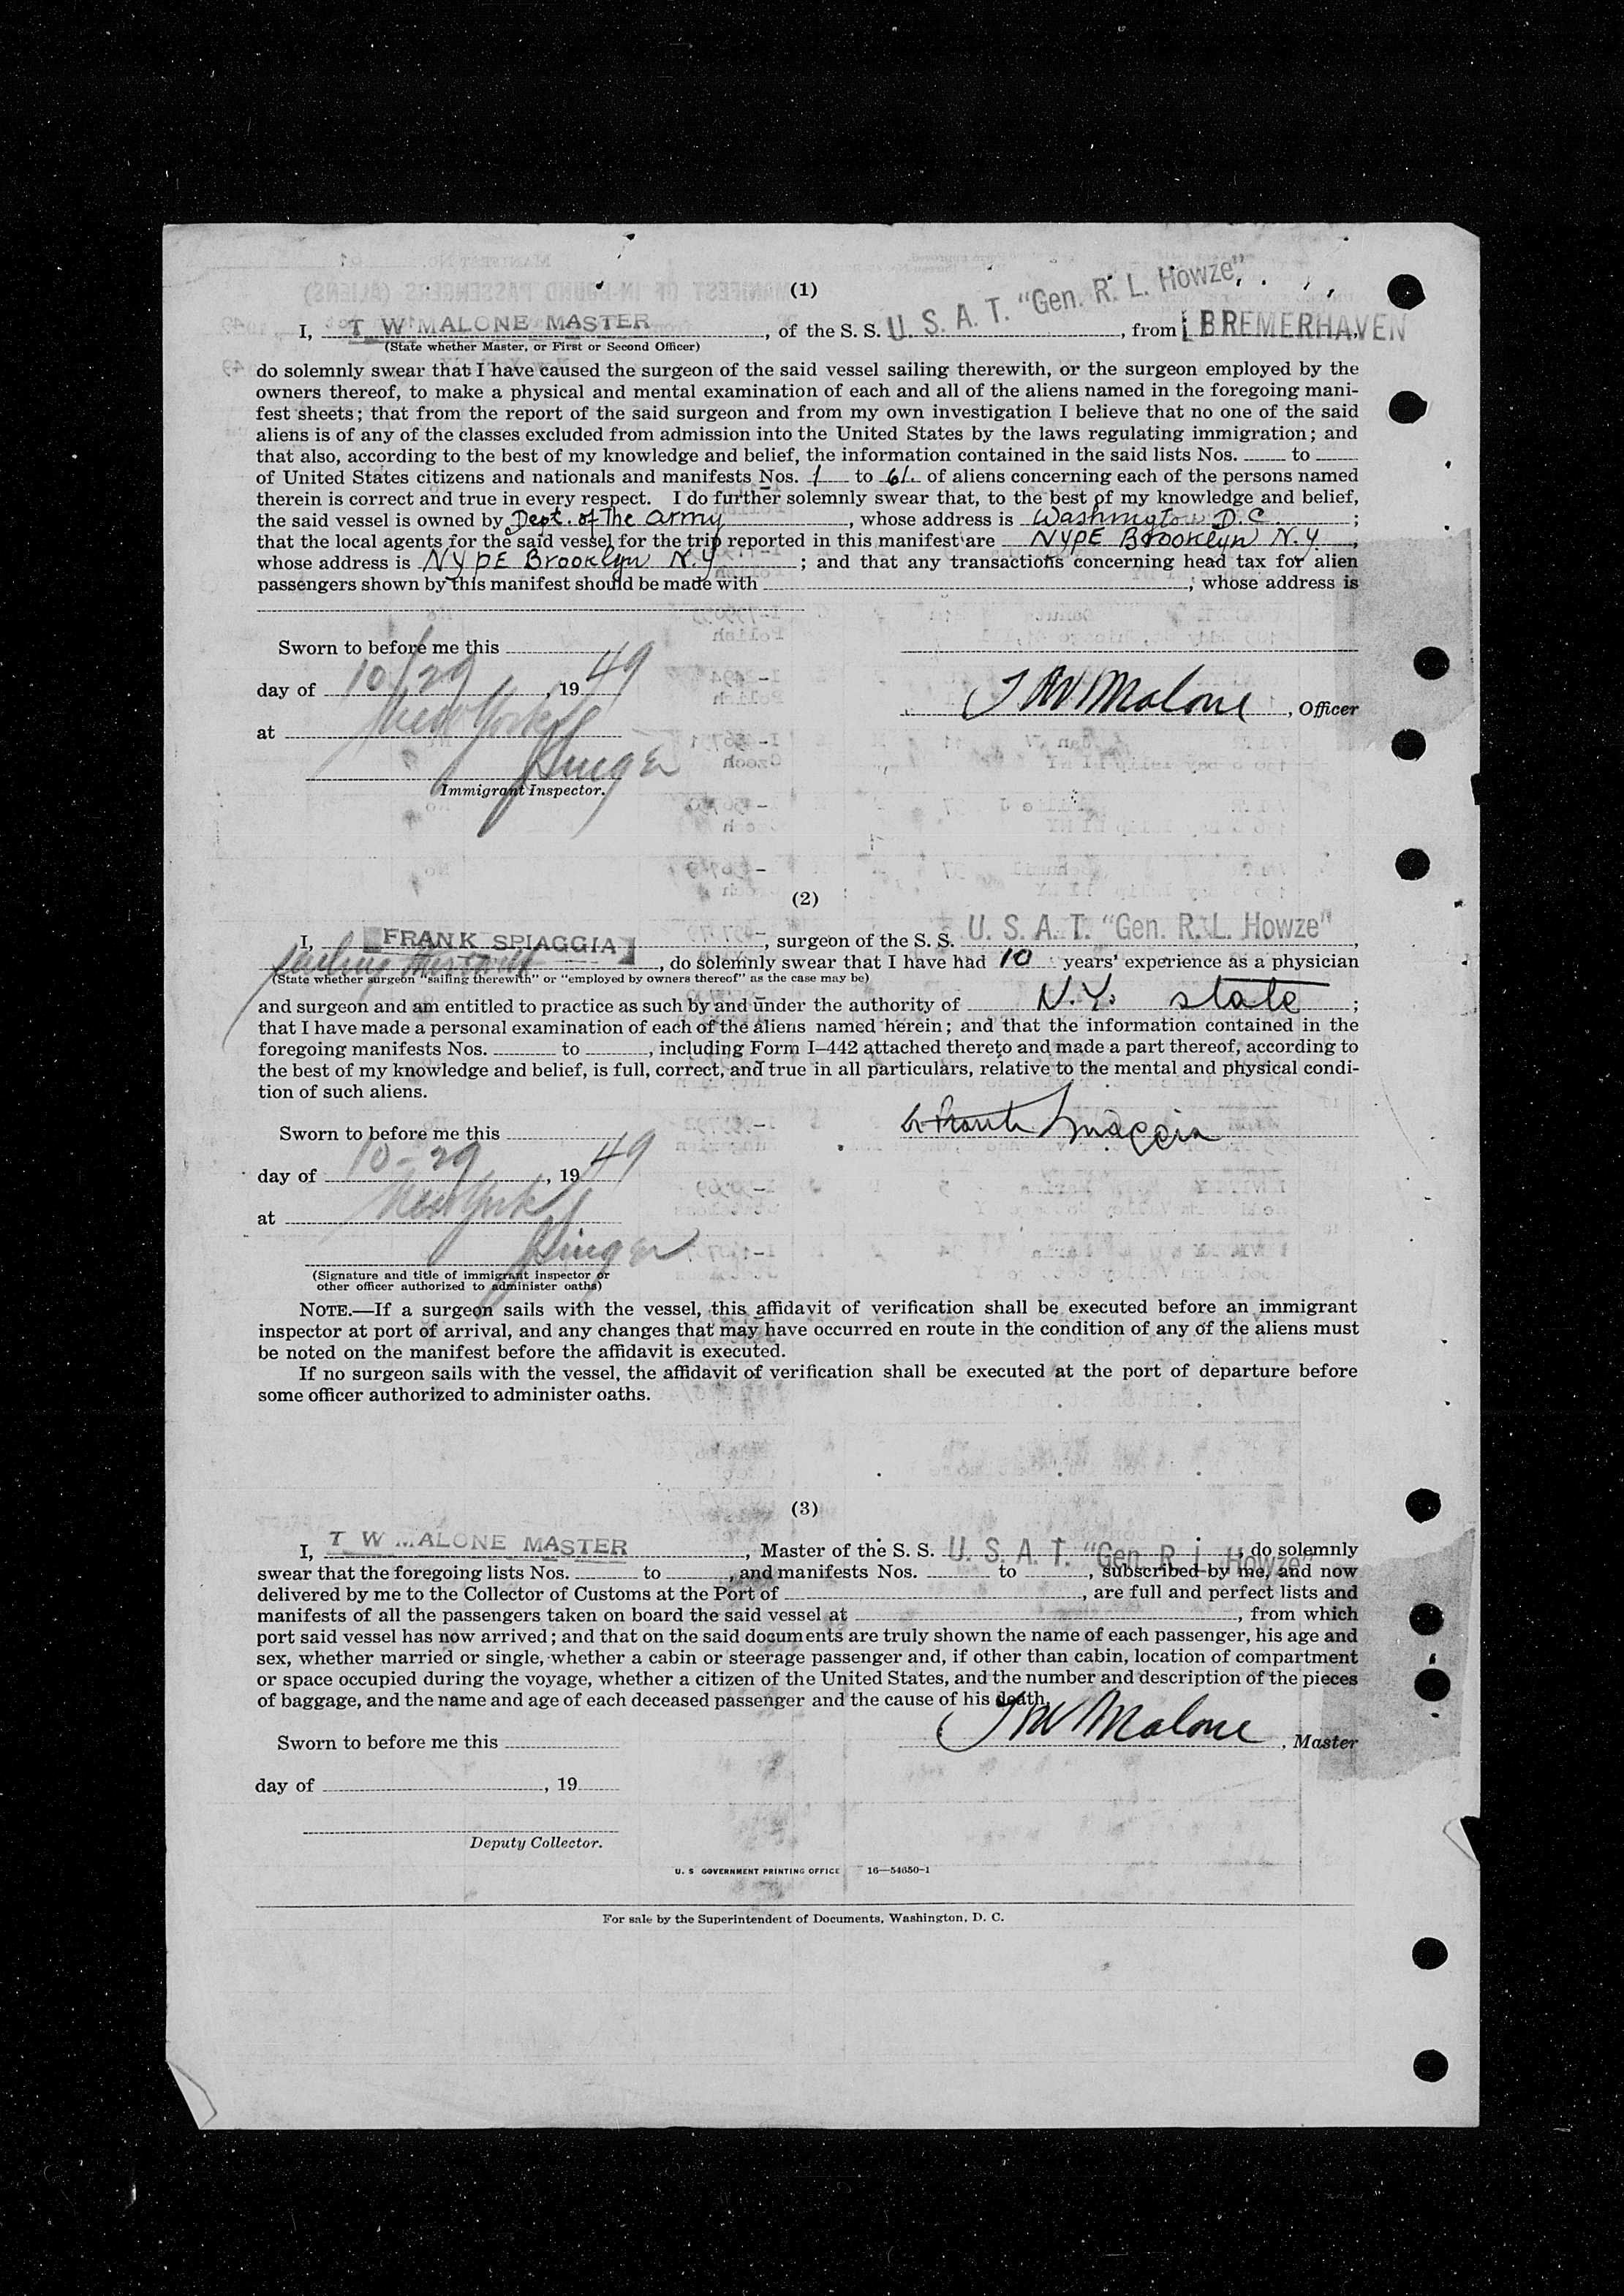 (1)
I, T W MALONE MASTER, of the S. S. U. S. A. T. "Gen. R. L. Howze", from BREMERHAVEN,
(State whether Master, or First or Second Officer)
do solemnly swear that I have caused the surgeon of the said vessel sailing therewith, or the surgeon employed by the
owners thereof, to make a physical and mental examination of each and all of the aliens named in the foregoing mani-
fest sheets; that from the report of the said surgeon and from my own investigation I believe that no one of the said
aliens is of any of the classes excluded from admission into the United States by the laws regulating immigration; and
that also, according to the best of my knowledge and belief, the information contained in the said lists Nos. to
of United States citizens and nationals and manifests Nos. 1 to 61. of aliens concerning each of the persons named
therein is correct and true in every respect. I do further solemnly swear that, to the best of my knowledge and belief,
the said vessel is owned by Dept. of The Army, whose address is Washington D.C.;
that the local agents for the said vessel for the trip reported in this manifest are NYPE Brooklyn N.Y.,
whose address is NYPE Brooklyn N.Y; and that any transactions concerning head tax for alien
passengers shown by this manifest should be made with , whose address is
Sworn to before me this
day of 10/29, 1949
T W Malone, Officer
at New York
Singer
Immigrant Inspector.
(2)
I, FRANK SPIAGGIA, surgeon of the S. S. U. S. A. T. "Gen. R. L. Howze",
sailing therewith, do solemnly swear that I have had 10 years' experience as a physician
(State whether surgeon "sailing therewith" or "employed by owners thereof" as the case may be)
and surgeon and am entitled to practice as such by and under the authority of N.Y. state;
that I have made a personal examination of each of the aliens named herein; and that the information contained in the
foregoing manifests Nos. to , including Form I–442 attached thereto and made a part thereof, according to
the best of my knowledge and belief, is full, correct, and true in all particulars, relative to the mental and physical condi-
tion of such aliens.
Frank Spiaggia
Sworn to before me this
day of 10-29, 1949
at New York
Singer
(Signature and title of immigrant inspector or
other officer authorized to administer oaths)
NOTE.—If a surgeon sails with the vessel, this affidavit of verification shall be executed before an immigrant
inspector at port of arrival, and any changes that may have occurred en route in the condition of any of the aliens must
be noted on the manifest before the affidavit is executed.
If no surgeon sails with the vessel, the affidavit of verification shall be executed at the port of departure before
some officer authorized to administer oaths.
(3)
I, T W MALONE MASTER, Master of the S. S. U. S. A. T. "Gen. R. L. Howze", do solemnly
swear that the foregoing lists Nos. to , and manifests Nos. to , subscribed by me, and now
delivered by me to the Collector of Customs at the Port of , are full and perfect lists and
manifests of all the passengers taken on board the said vessel at , from which
port said vessel has now arrived; and that on the said documents are truly shown the name of each passenger, his age and
sex, whether married or single, whether a cabin or steerage passenger and, if other than cabin, location of compartment
or space occupied during the voyage, whether a citizen of the United States, and the number and description of the pieces
of baggage, and the name and age of each deceased passenger and the cause of his death.
T W Malone, Master
Sworn to before me this
day of , 19
Deputy Collector.
U. S GOVERNMENT PRINTING OFFICE 16—54650-1
For sale by the Superintendent of Documents, Washington, D. C.